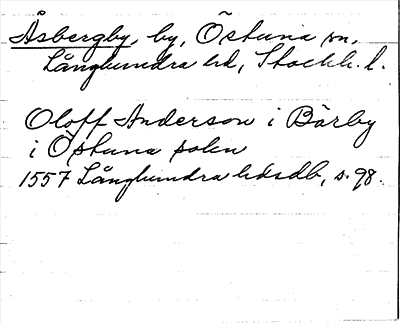 Åsbergby, by, Östuna sn,
Långhundra hd, Stockh. l.
Oloff Anderson i Bärby
i Östuna sokn
1557 Långhundra hdsdb, s. 98.